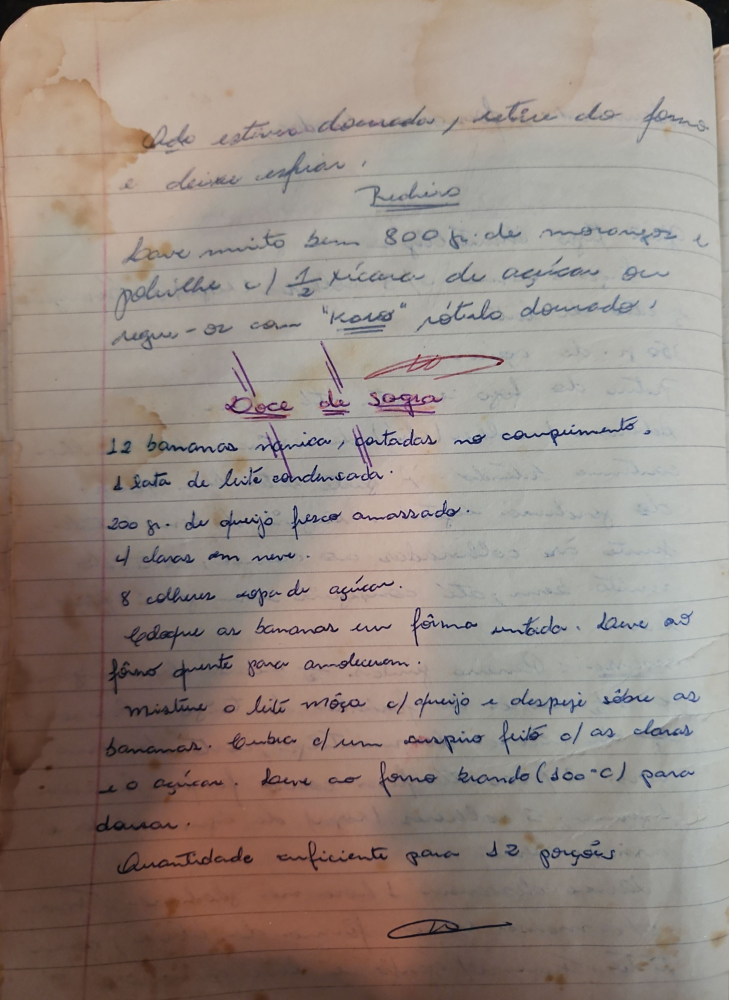 Qdo estiver dourada, retire do forno
e deixe esfriar.
Recheio
Lave muito bem 800 gr. de morangos e
polvilhe c/ 1/2 xícara de açúcar ou
regue-os com "Karo" rótulo dourado.
Doce de sogra
12 bananas nanica, cortadas no comprimento.
1 lata de leite condensada.
200 gr. de queijo fresco amassado.
4 claras em neve.
8 colheres sopa de açúcar.
Coloque as bananas em fôrma untada. Leve ao
fôrno quente para amolecerem.
Misture o leite môça c/ queijo e despeje sôbre as
bananas. Cubra c/ um suspiro feito c/ as claras
e o açúcar. Leve ao forno brando (100°C) para
dourar.
Quantidade suficiente para 12 porções